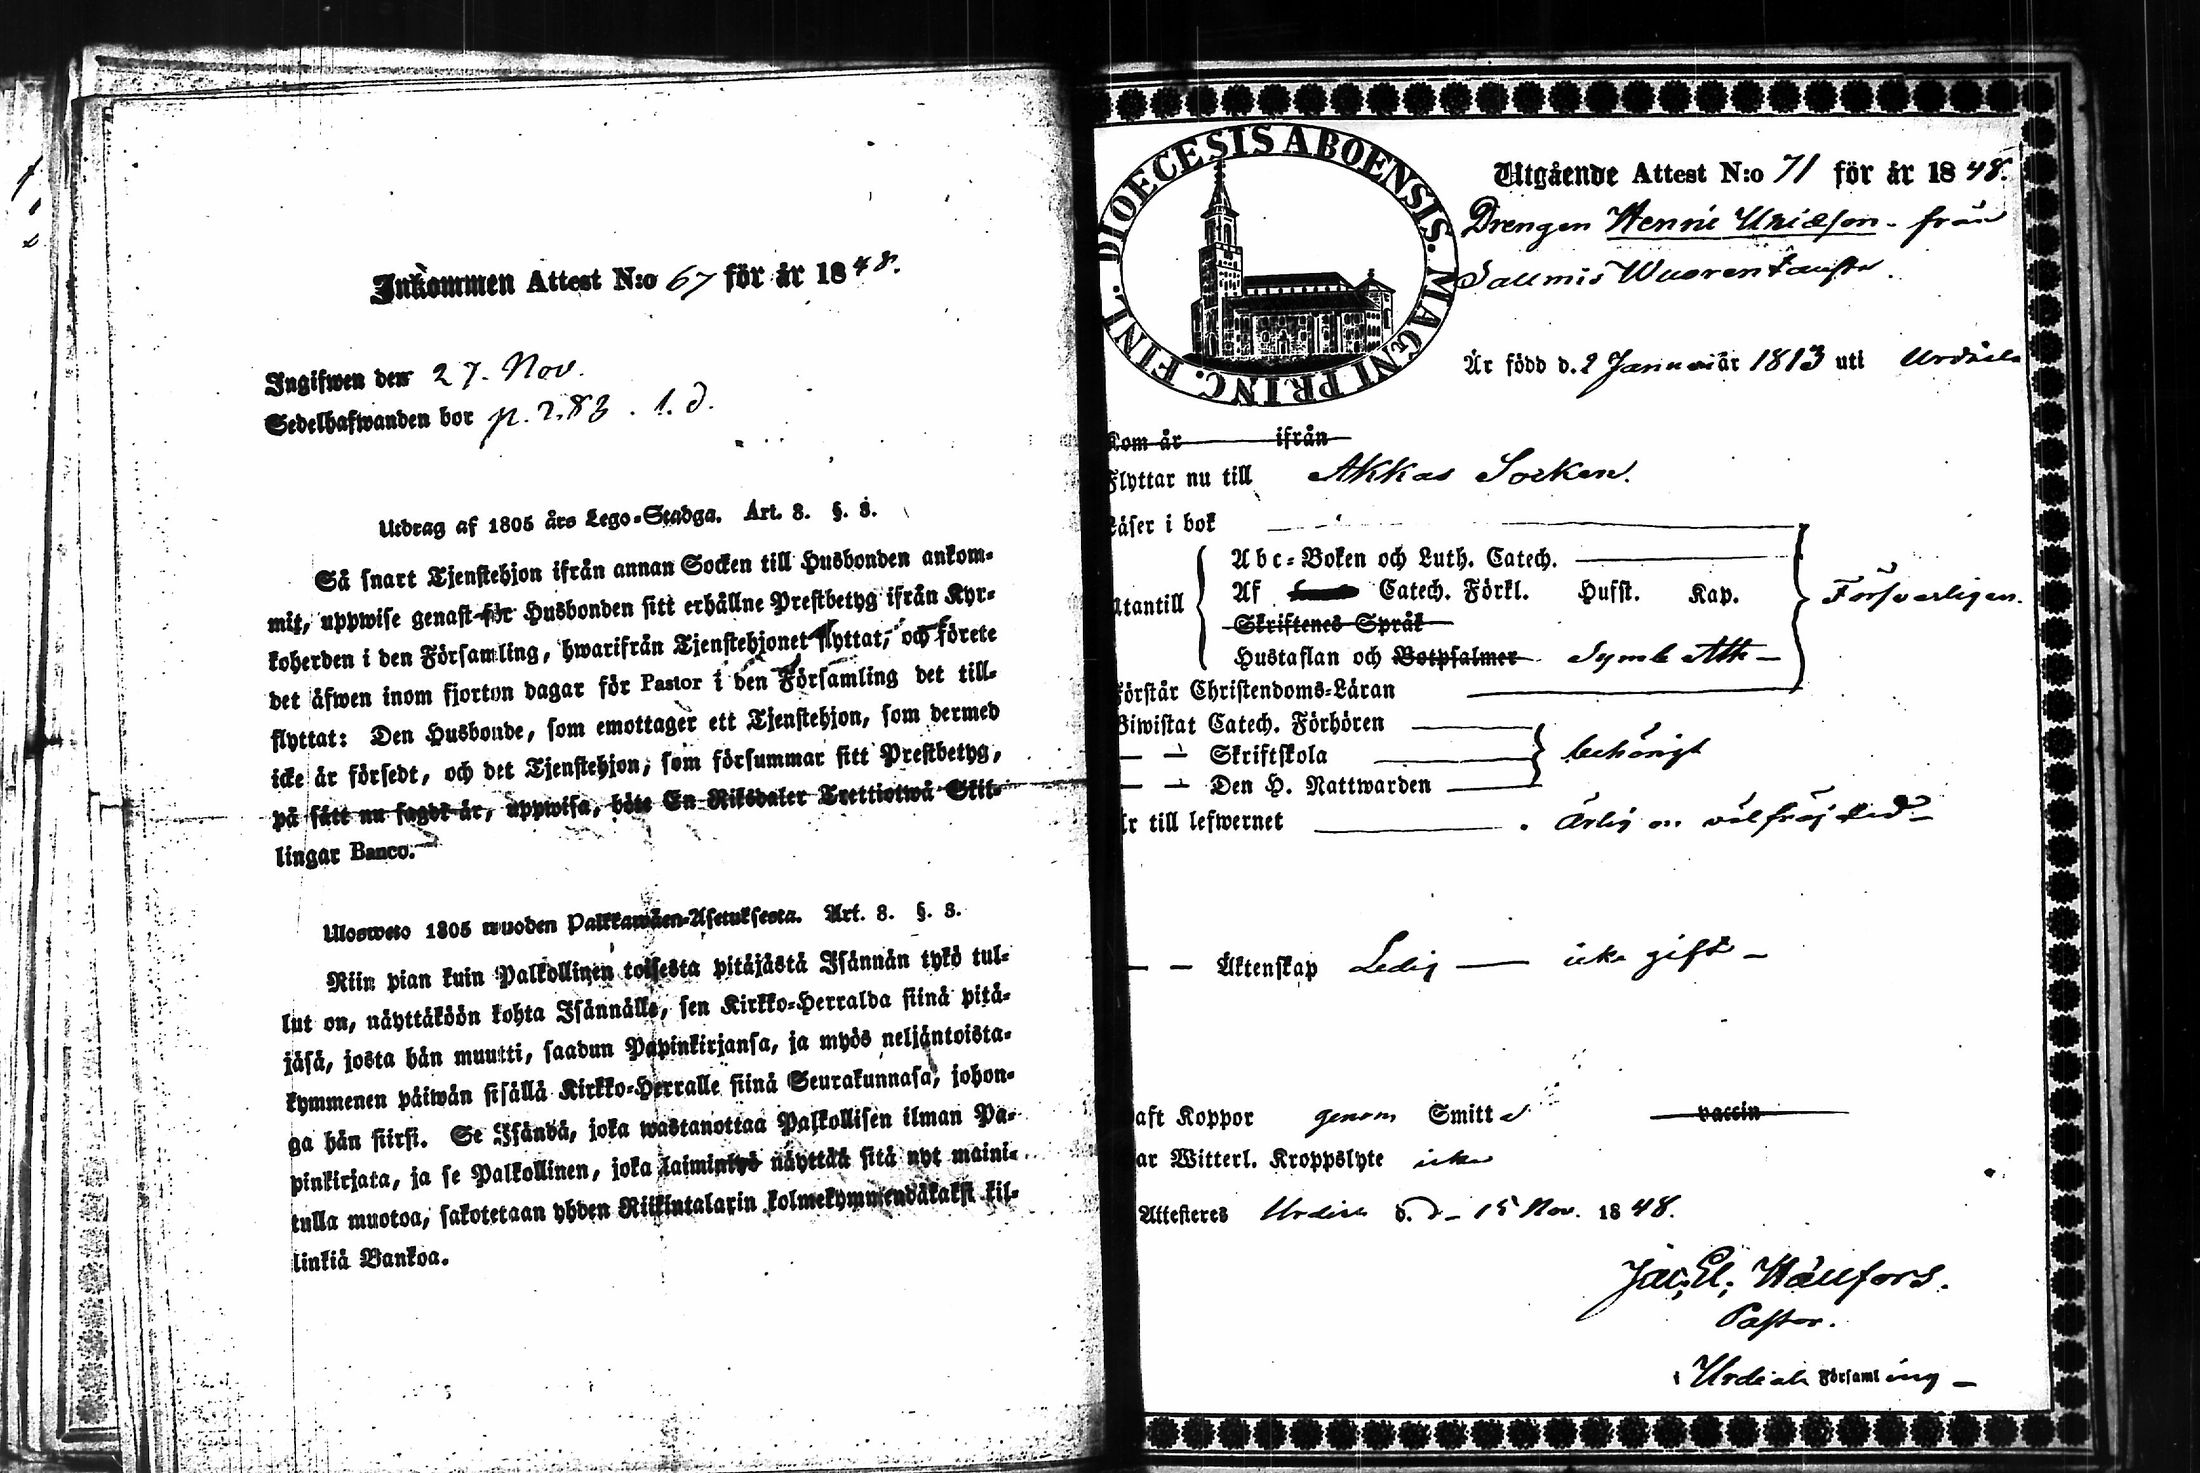 Inkommen Attest N:o 67 för år 1848.
Ingifwen den 27. Nov.
Sedelhafwanden bor p. 283. 1. d.
Utdrag af 1805 års Lego-Stadga. Art. 3. §. 3.
Så snart Tjenstehjon ifrån annan Socken till Husbonden ankom-
mit, uppwise genast för Husbonden sitt erhållne Prestbetyg ifrån Kyr-
koherden i den Församling, hwarifrån Tjenstehjonet flyttat, och förete
det äfwen inom fjorton dagar för Pastor i den Församling det till-
flyttat: Den Husbonde, som emottager ett Tjenstehjon, som dermed
icke är försedt, och det Tjenstehjon, som försummar sitt Prestbetyg,
på sätt nu sagdt är, uppwisa, böte En Riksdaler Trettiotwå Skil-
lingar Banco.
Ulosweto 1805 wuoden Palkkawäen-Asetuksesta. Art. 3. §. 3.
Niin pian kuin Palkollinen toisesta pitäjästä Isännän tykö tul-
lut on, näyttäköön kohta Isännälle, sen Kirkko-Herralda siinä pitä-
jäsä, josta hän muutti, saadun Papinkirjansa, ja myös neljäntoista-
kymmenen päiwän sisällä Kirkko-Herralle siinä Seurakunnasa, johon-
ga hän siirsi. Se Isändä, joka wastanottaa Palkollisen ilman Pa-
pinkirjata, ja se Palkollinen, joka laiminlyö näyttää sitä nyt maini-
tulla muotoa, sakotetaan yhden Riikintalarin kolmekymmendäkaksi kil-
linkiä Bankoa.
DIOECESIS ABOENSIS. MAGNI PRINC. FINL.
Utgående Attest N:o 71 för år 1848.
Drengen Henric Ericsson från
Sallmis Wuorentausta.
Är född d. 2 Januariär 1813 uti Urdiala
Kom år ifrån
Flyttar nu till Akkas Socken.
Läser i bok
Utantill
Abc-Boken och Luth. Catech.
Af Catech. Förkl. Husst. Kap.
Försvarligen.
Skriftenes Språk
Hustaflan och Botpsalmer Symb. Ath
Förstår Christendoms-Läran
Biwistat Catech. Förhören
— — Skriftskola behörigt
— — Den H. Nattwarden
Är till lefwernet Ärlig o. välfräjdad
— — Äktenskap Ledig — icke gift —
Haft Koppor genom Smitta vaccin
Har Witterl. Kroppslyte icke
Attesteres Urdiala d. d. 15 Nov. 1848.
Jac. El. Hällfors.
Pastor.
i Urdiala Församling